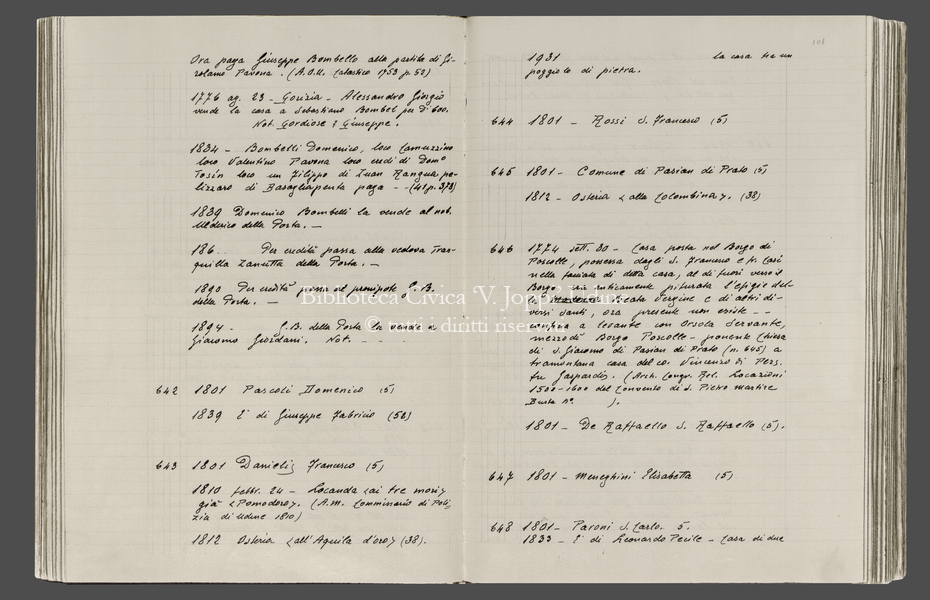 Ora paga Giuseppe Bombello alla partita di Gi-
rolamo Pavona. (A.O.U. Catastico 1753 p. 52)
1776 ag. 23 - Gorizia - Alessandro Giorgio
vende la casa a Sebastiano Bombel per D. 600.
Not. Gordiose : Giuseppe.
1834 - Bombelli Domenico, loco
loco Valentino Pavona loco eredi di Domº
Tosin loco un Filippo di Zuan pe-
lizzaro di Basagliapenta paga - - (41 p. 373)
1839 Domenico Bombelli la vende al not.
Ulderico della Porta. -
186.. Per eredità passa alla vedova Tran-
quilla Zanutta della Porta. -
1890 Per eredità passa al pronipote G.B.
della Porta. -
1894 - G.B. della Porta la vende a
Giacomo Giordani. Not. - - -
642 1801 Pascoli Domenico (5)
1839 E' di Giuseppe Fabricio (52)
643 1801 Danielis Francesco (5)
1810 febbr. 24 - Locanda <ai tre mori>
già <Pomodoro>. (A.M. Commissario di Poli-
zia di Udine 1810)
1812 Osteria <all'Aquila d'oro> (38).
108
1931 la casa ha un
poggiolo di pietra.
644 1801 - Rossi S. Francesco (5)
645 1801 - Comune di Pasian di Prato (5)
1812 - Osteria <alla Colombina>. (38)
646 1774 sett. 30 - Casa posta nel Borgo di
Poscolle, possessa dagli S. Francesco e
nella facciata di detta casa, al di fuori verso il
Borgo era anticamente piturata l'efigie del-
la Beata Vergine e di altri di-
versi Santi, ora presente non esiste - -
confina a levante con Orsola Servante,
mezzodì Borgo Poscolle - ponente Chiesa
di S. Giacomo di Pasian di Prato (n. 645) a
tramontana casa del co. Vincenzo di Pers,
fu Gaspardo. (Arch. Congr. Rel. Locazioni
1500-1600 del Convento di S. Pietro Martire
Busta nº ).
1801 - De Raffaello S. Raffaello (5).
647 1801 - Meneghini Elisabetta (5)
648 1801 - Paroni S. Carlo. 5.
1833 - E' di Leonardo Pecile - Casa di due
Biblioteca Civica 'V. Joppi' Udine
© tutti i diritti riservati